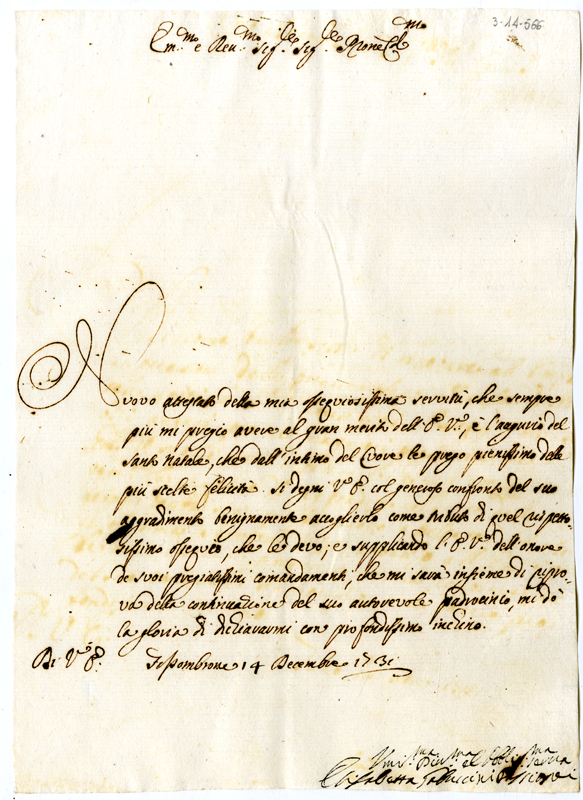 3-14-566
Em.mo e Rev.mo Sig.re Sig.re Pron̄e Col.mo
Nuovo attestato della mia ossequiosissima servitù, che sempre
più mi pregio avere al gran merito dell'E.a V.a, è l'augurio del
Santo Natale, che dall'intimo del Cuore le prego pienissimo delle
più scelte felicità. Si degni V.a E.a col generoso conforto del suo
aggradimento benignamente accoglierlo come tributo di quel rispetto-
sissimo ossequio, che le devo; e supplicando l'E.a V.a dell'onore
de suoi pregiatissimi comandamenti, che mi sarà insieme di ripro-
va della continuazione del suo autorevole padrocinio, mi dò
la gloria di dichiararmi con profondissimo inchino.
Di V.a E.a Fossombrone 14 Decembre 1731
Um.ma Div.ma ed Obblig.ma Serva
Elisabetta